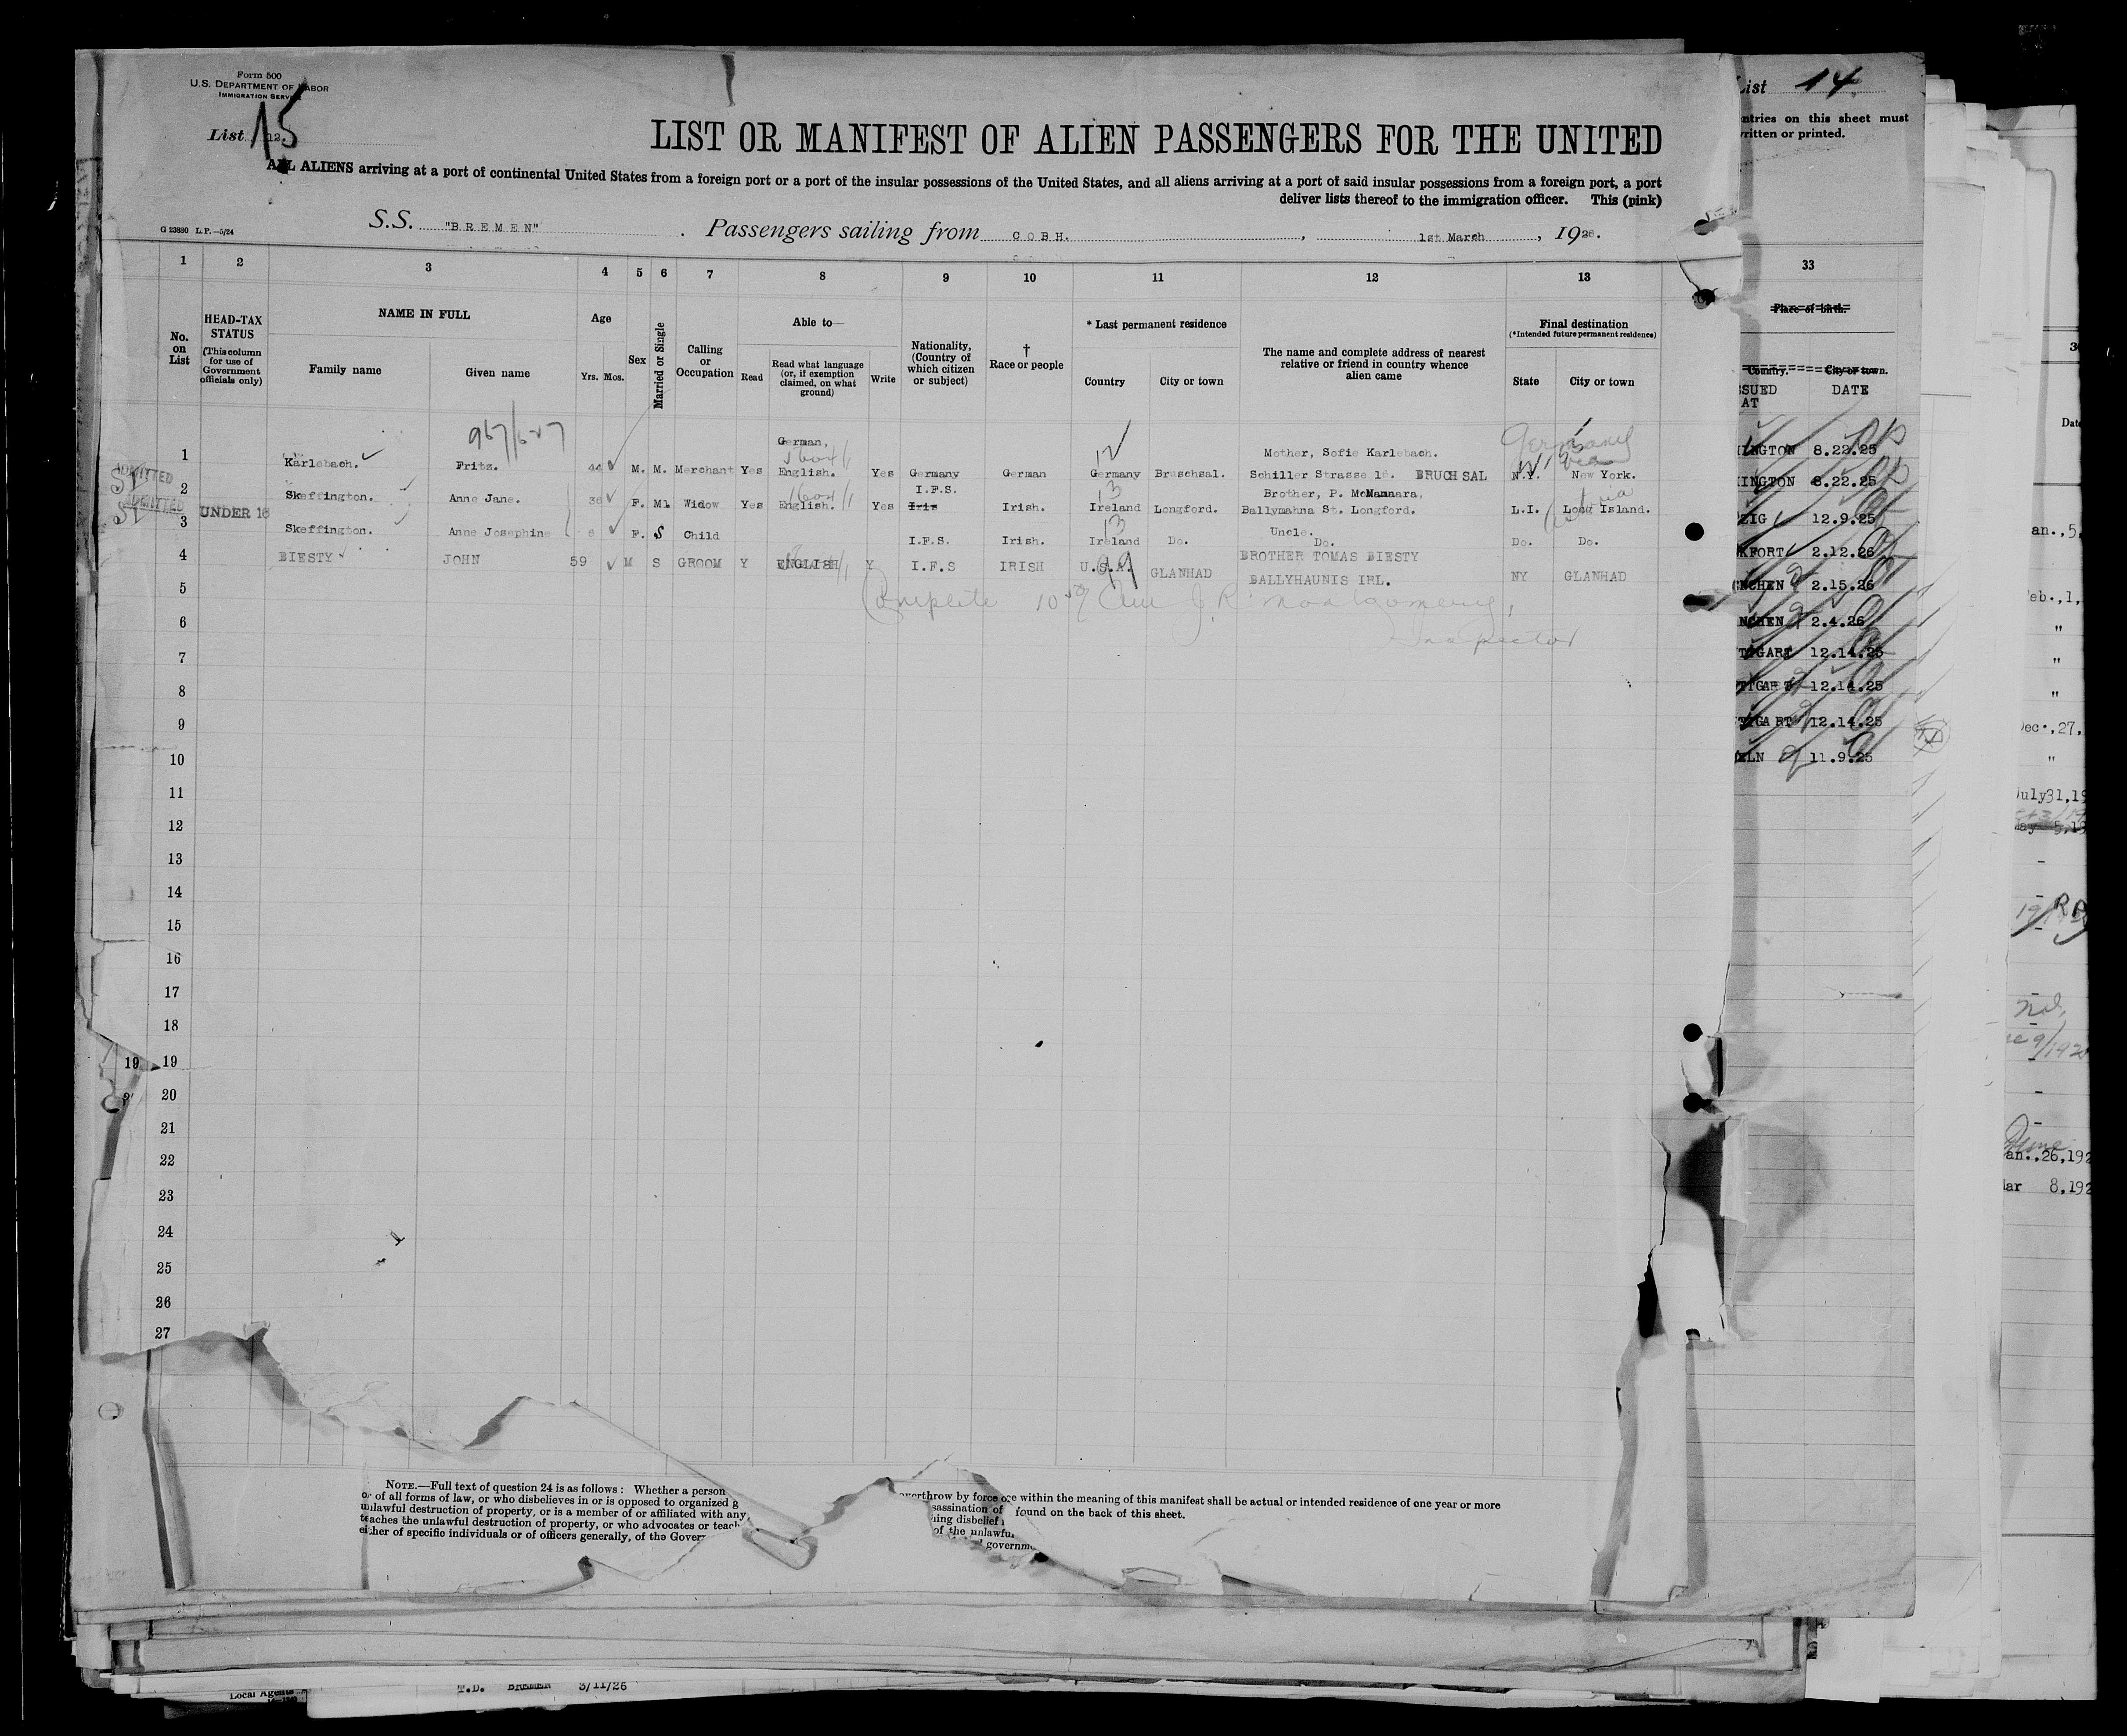 Form 500
U.S. DEPARTMENT OF LABOR
IMMIGRATION SERVICE
List 15
12.
LIST OR MANIFEST OF ALIEN PASSENGERS FOR THE UNITED
ALL ALIENS arriving at a port of continental United States from a foreign port or a port of the insular possessions of the United States, and all aliens arriving at a port of said insular possessions from a foreign port, a port
deliver lists thereof to the immigration officer. This (pink)
G 23880 L.P.—5/24
S.S. "BREMEN" . Passengers sailing from COBH. , 1st March , 1926.
1 2 3 4 5 6 7 8 9 10 11 12 13
No. on List
HEAD-TAX STATUS
(This column for use of Government officials only)
NAME IN FULL
Family name Given name
Age
Yrs. Mos.
Sex
Married or Single
Calling or Occupation
Able to—
Read
Read what language (or, if exemption claimed, on what ground)
Write
Nationality, (Country of which citizen or subject)
† Race or people
* Last permanent residence
Country City or town
The name and complete address of nearest relative or friend in country whence alien came
Final destination
(*Intended future permanent residence)
State City or town
967/6-27
1 Karlebach. Fritz. 44 M. M. Merchant Yes German, English. Yes Germany German Germany Bruschsal. Mother, Sofie Karlebach. Schiller Strasse 16. BRUCHSAL N.Y. New York.
ADMITTED
2 Skeffington. Anne Jane. 36 F. M. Widow Yes English. Yes I.F.S. Irish. Ireland Longford. Brother, P. McNamara, Ballymahna St. Longford. L.I. Long Island.
ADMITTED
UNDER 16
3 Skeffington. Anne Josephine 6 F. S Child I.F.S. Irish. Ireland Do. Uncle. Do. Do. Do.
4 BIESTY JOHN 59 M S GROOM Y ENGLISH Y I.F.S IRISH U.S.A. GLANHAD BROTHER TOMAS BIESTY BALLYHAUNIS IRL. NY GLANHAD
99
Complete J. R. Montgomery,
Inspector
5
6
7
8
9
10
11
12
13
14
15
16
17
18
19 19
20
21
22
23
24
25
26
27
NOTE.—Full text of question 24 is as follows : Whether a person
or of all forms of law, or who disbelieves in or is opposed to organized g
unlawful destruction of property, or is a member of or affiliated with any
teaches the unlawful destruction of property, or who advocates or teach
either of specific individuals or of officers generally, of the Gover
overthrow by force
sassination of
hing disbelief
of the unlawfu
governme
ce within the meaning of this manifest shall be actual or intended residence of one year or more
found on the back of this sheet.
List 14
entries on this sheet must
written or printed.
33
Place of birth.
Country. City or town.
ISSUED AT DATE
INGTON 8.22.25
INGTON 8.22.25
ZIG 12.9.25
KFORT 2.12.26
NCHEN 2.15.26
NCHEN 2.4.26
TGART 12.14.25
TTGART 12.14.25
TTGART 12.14.25
ELN 11.9.25
Date
an.,5,
eb.,1,
"
"
"
Dec.,27,
"
July31,19
May 5,19
Jan.,26,192
Mar 8,192
Local Agents
T.D. BREMEN 3/11/26